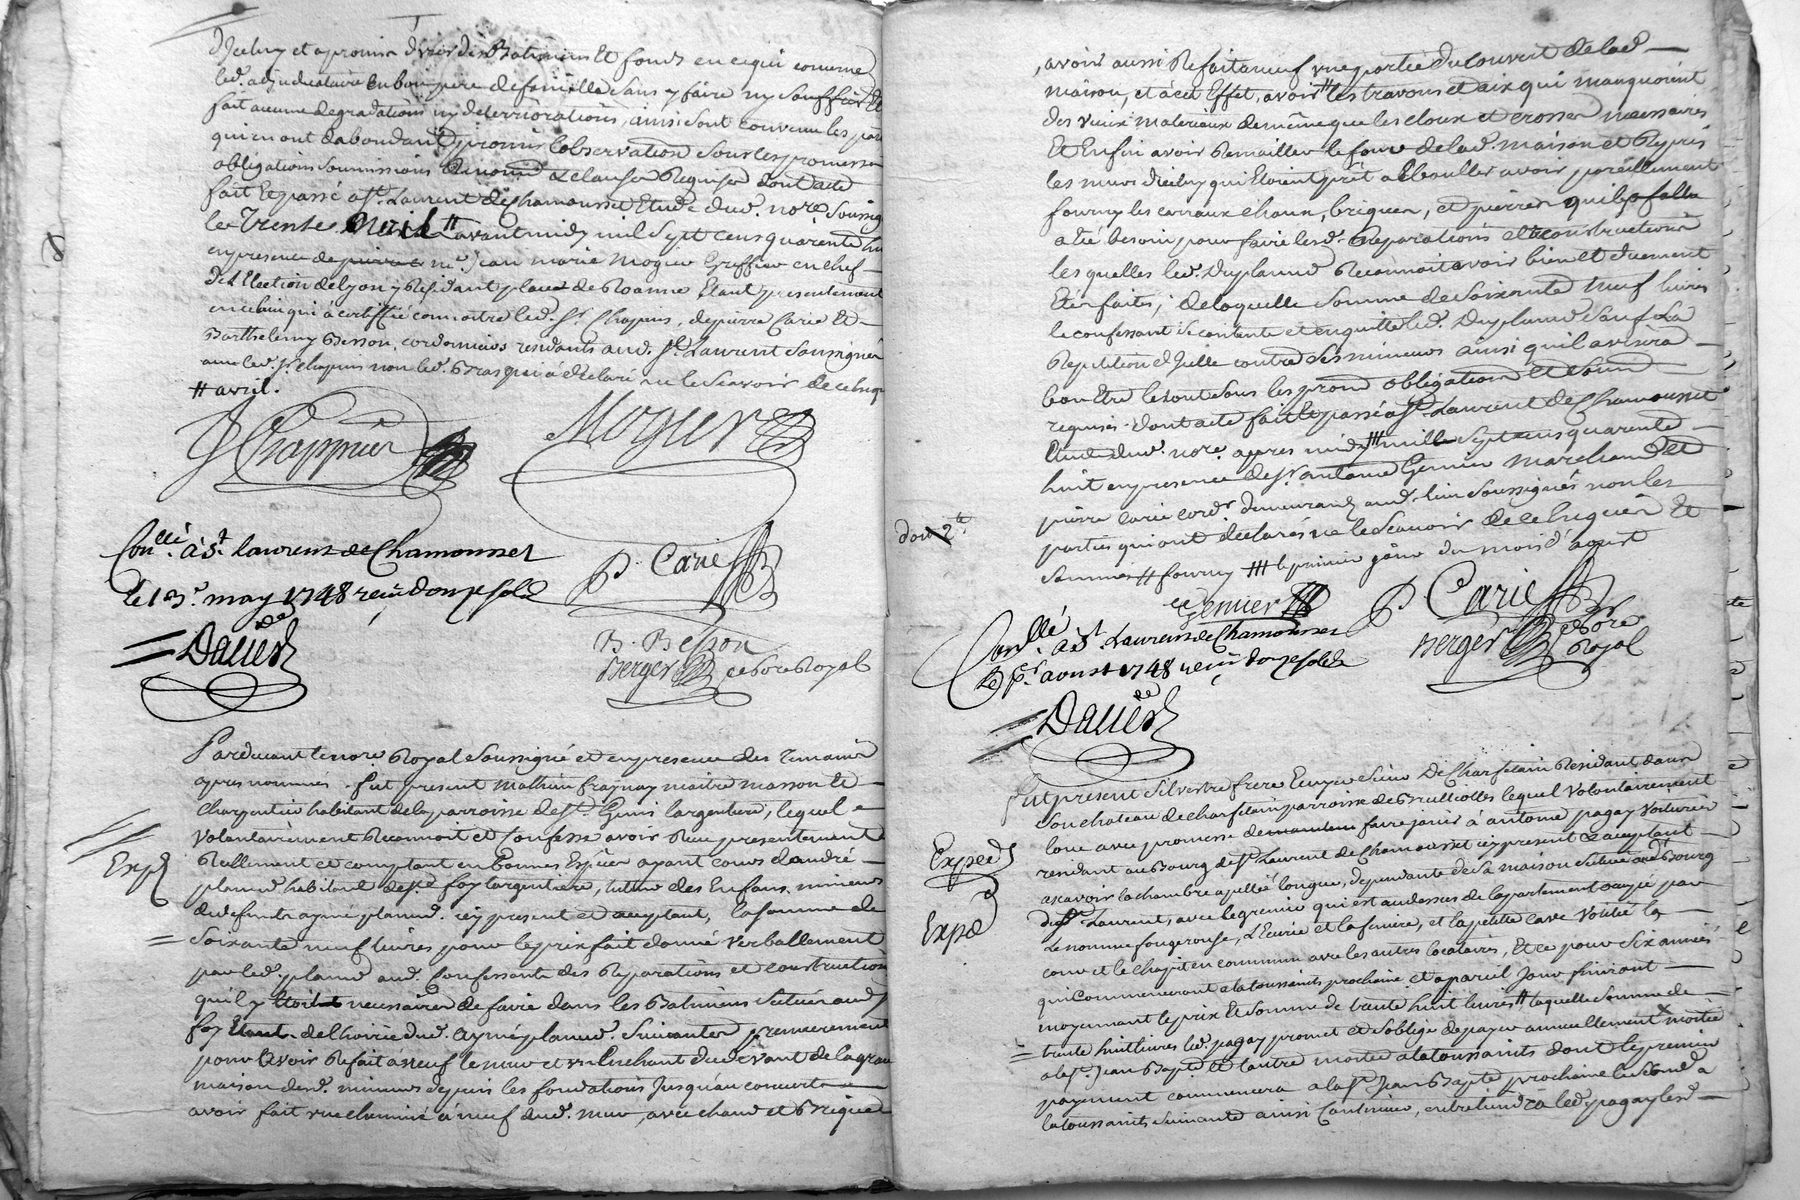 d'iceluy et a promis d'user des Batimens Et fonds en ce qui concerne
led. adjudicataire en bon pere de famille sans y faire ny souffrir Et
fait aucune degradations ny deteriorations, ainsi sont convenu les par
qui en ont d'abondant promis l'observation sous les promesses
obligations soumissions & clauses Requises dont acte
fait et passé a St. Laurent de Chamousset Etude dud. nore. soussig
le Trente # avant midy mil sept cens quarente hu
en presence de me. Jean marie Mogier Greffier en chef
De l'Election de Lyon y Residant place de Roanne Etant presentement
en ce lieu qui a certiffié connoitre led. Sr. Chapuis, de pierre Carie Et
Barthelemy Besson, cordonniers residants aud. St. Laurent soussignés
avec led. Sr. chapuis non led. Bras qui a déclaré ne le scavoir de ce requ
# avril.
Mogier
Conllé. à St. laurent de Chamousset
le 13e. may 1748 reçu douze sols
P. Carie
Dauier
B. Besson
Berger nore Royal
Pardevant le nore Royal Soussigné et en presence des Temoins
apres nommés fut present Mathieu fraynay maitre masson Et
Charpentier habitant de la parroisse de St. Genis largentiere, lequel
Volontairement Reconnoit et Confesse avoir Reçu presentement
Réellement et comptant en bonnes Especes ayant cours d'andré
planud habitant de Ste foy largentiere, tuteur des Enfans mineurs
Expé
du defunt aymé planud. icy present et acceptant, la somme de
Soixante neuf livres pour le prix fait donné Verballement
par led. planud aud. Confessant des Reparations et constructions
qu'il y necessaires de faire dans les Batimens Situés aud.
foy de l'hoirie dud. aymé planud. Suivantes premierement
pour avoir Refait à neuf le mur du devant de la gran
maison desd. mineurs depuis les fondations jusqu'au couvert
avoir fait une cheminée à neuf aud. mur, avec chaux et Briques
, avoir aussi Refait à neuf une partie du couvert de lad.
maison, et à cet Effet, avoir # les travons et aix qui manquoient
des vieux materiaux de même que les cloux et crosses necessaires
Et Enfin avoir Remailler le four de lad. maison et Repris
les murs d'iceluy qui Etoient prêt a Ebouller avoir pareillement
fourny les carraux chaux, briques, et pierres qu'il
a été besoin pour faire lesd. Reparations et constructions
les quelles led. Duplanud Reconnoit avoir bien et duement
Eté faites; de laquelle Somme de soixante neuf livres
le confessant se contente et en quitte led. Duplanud sauf sa
Repetition d'Icelle contre ses mineurs ainsi qu'il avisera
bon Etre le tout sous les prom obligations et
requis. dont acte fait et passé a St. Laurent de Chamousset
Etude dud. nore. apres midy ### mille sept cens quarente
huit en presence de Sr. antoine Genier marchand et
pierre carie cordr. demeurans aud. lieu soussignés non les
doit 2e.
parties qui ont déclarés ne le Scavoir de ce requises Et
Sommés # fourny ### le premier jour du mois d'aoust
Genier
P. Carie
Conllé. à St. Laurent de Chamousset
le pr. aoust 1748 reçu douze sols
Berger nore Royal
Dauier
Fut present Silvestre frere Ecuyer Sieur De Charfetain Residant dans
Son chateau de charfetain parroisse de Brulliolles lequel Volontairement
loue avec promesse de faire jouir à antoine pagay Voiturier
Exped
residant au Bourg de St. Laurent de Chamousset icy present & acceptant
ascavoir la chambre apellée longue, dependante de sa maison située aud. Bourg
de St. Laurent, avec le grenier qui est au dessus de l'apartement occupé par
Expé
Le nommé fougerouse, L'Ecurie et la feniere, et la petite cave Voutée la
cour et le chapit en commun avec les autres locataires, Et ce pour Six années
qui Commenceront a la toussaints prochaine et a pareil Jour finiront
moyennant le prix Et Somme de trente huit livres # laquelle Somme de
trente huit livres led. pagay promet et s'oblige de payer annuellement moitié
a la St. Jean Bapte Et l'autre moitié a la toussaints dont le premier
payement commencera a la St. Jean Bapte prochaine le Second a
la toussaints suivante ainsi Continuer, entretiendra led. pagay lesd.